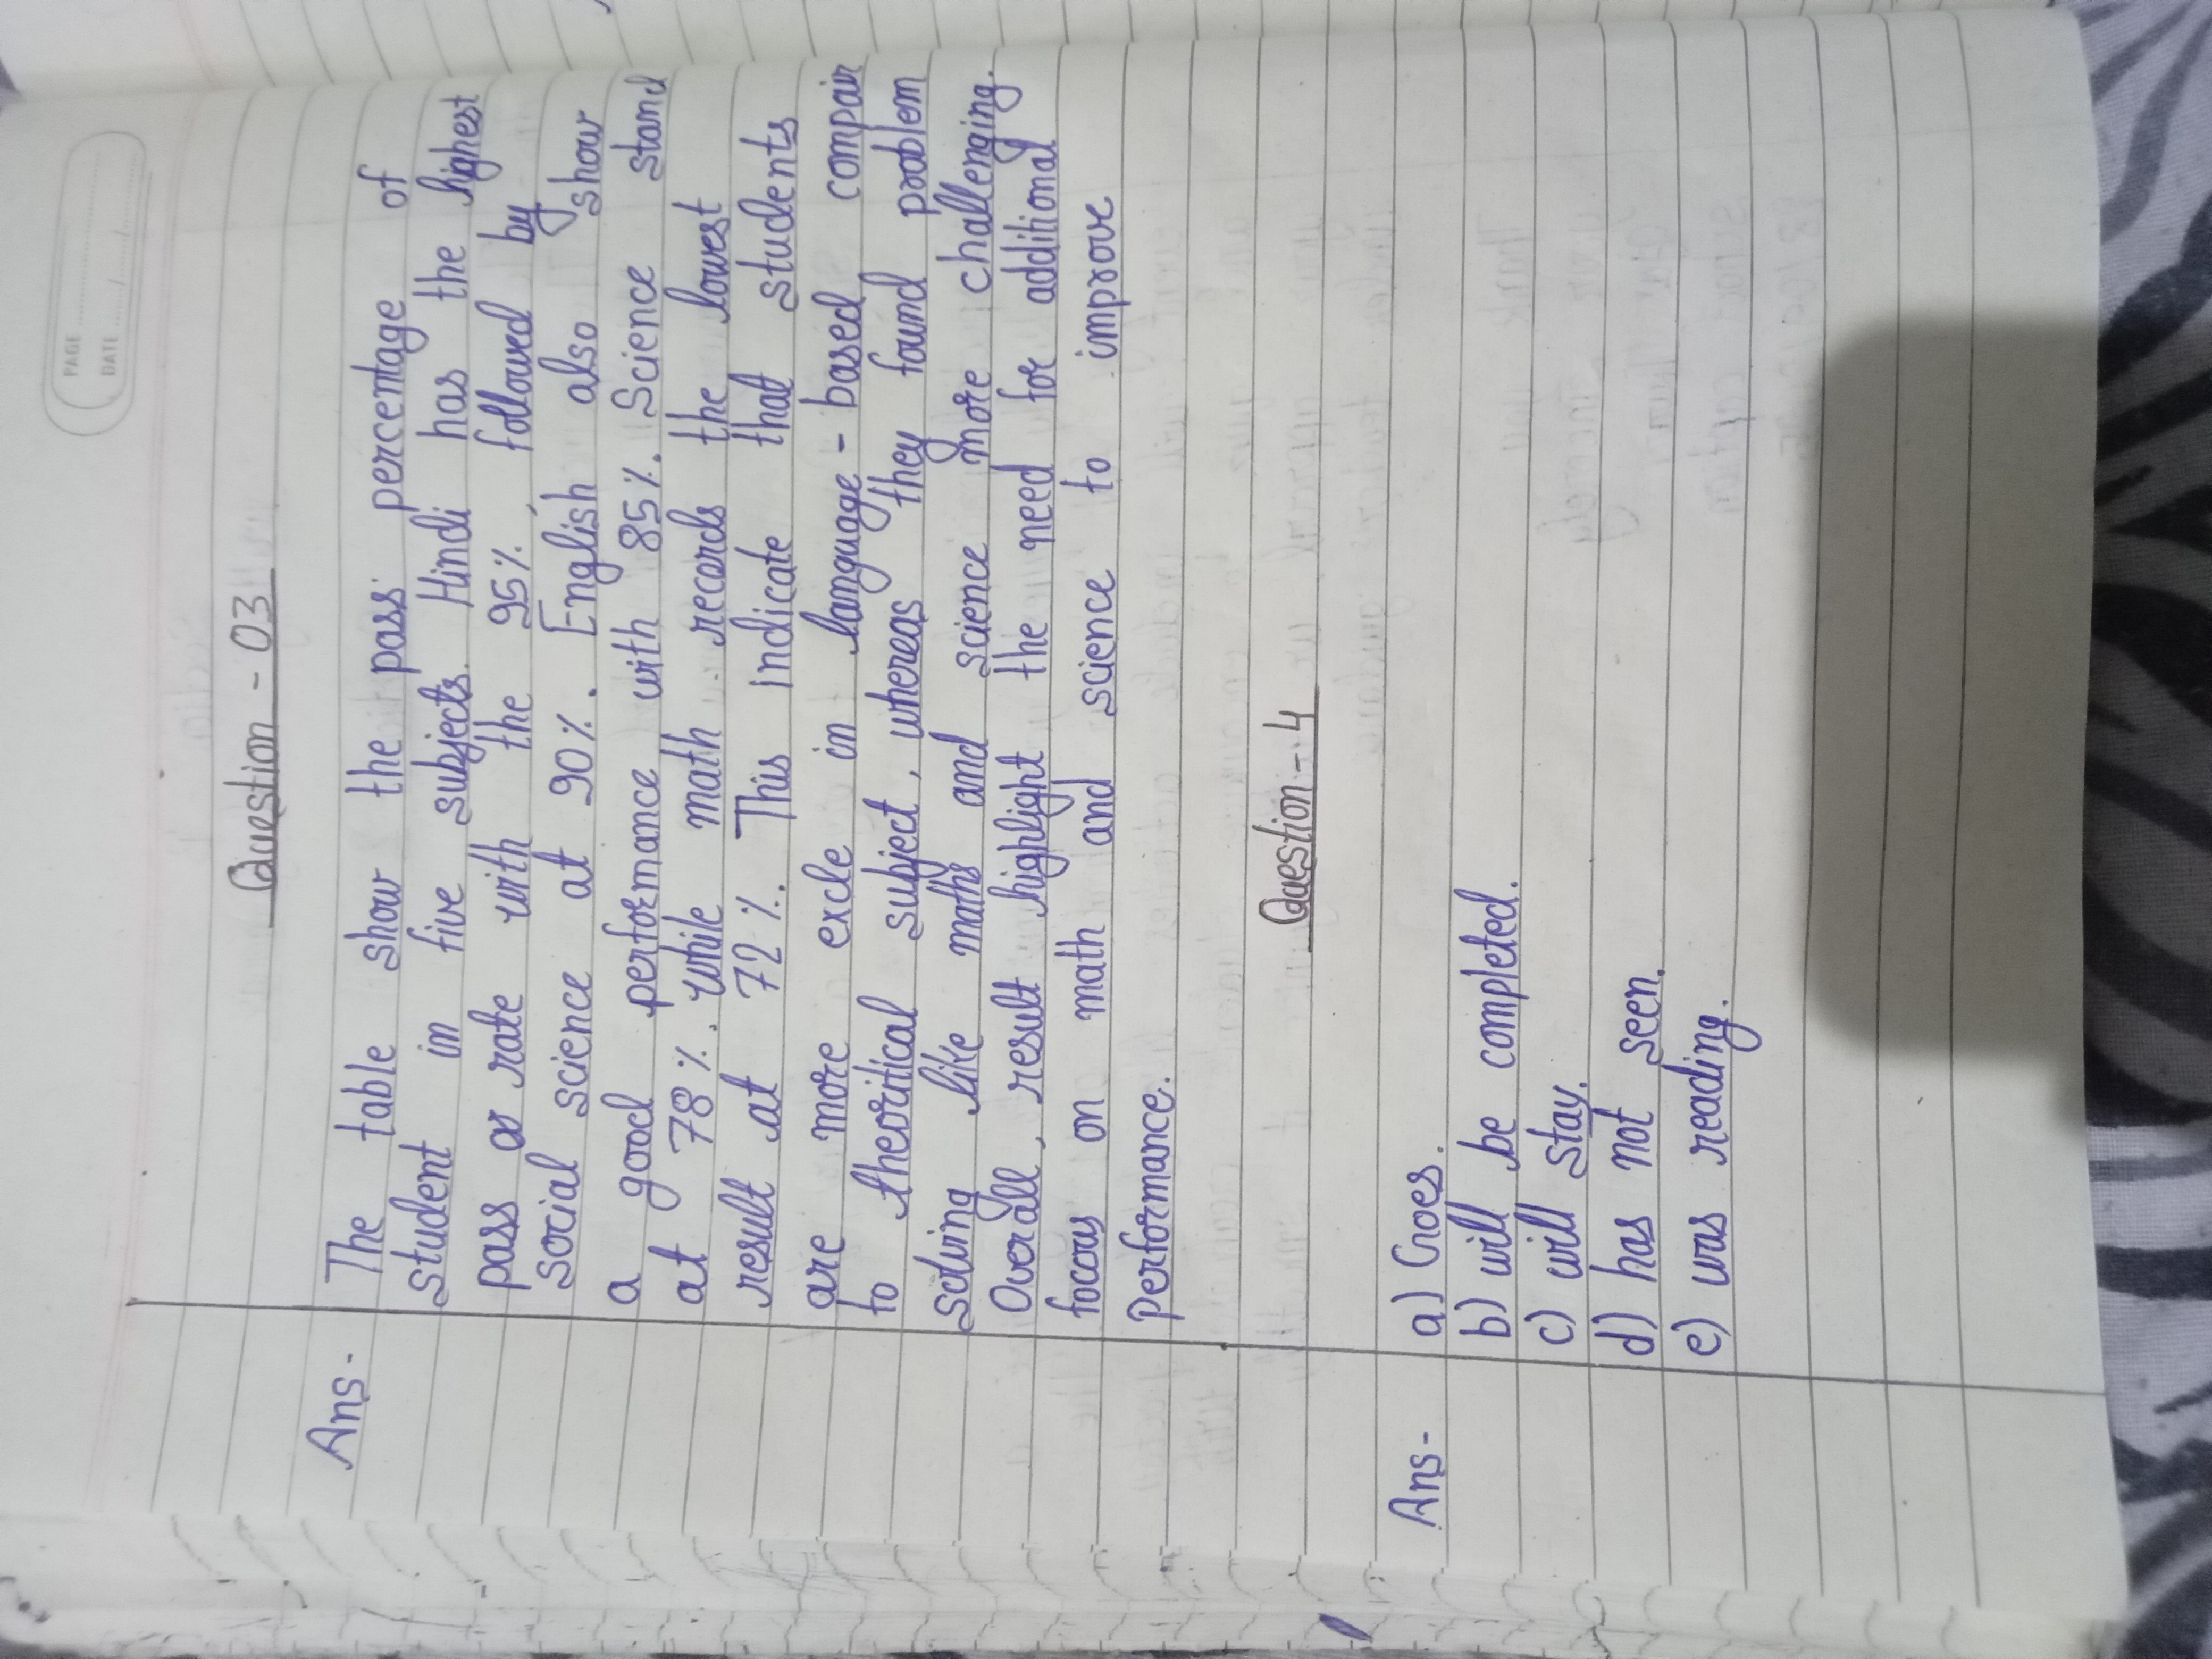 PAGE
DATE
Question - 03
Ans - The table show the pass percentage of
student in five subjects. Hindi has the highest
pass rate with the 95%, followed by
social science at 90%. English also show
a good performance with 85%. Science stand
at 78%. while math records the lowest
result at 72%. This indicate that students
are more excle in language - based compair
to theoritical subject, whereas they found problem
solving like maths and science more challenging.
Overall, result highlight the need for additional
focous on math and science to improve
performance.
Question - 4
Ans - a) Goes.
b) will be completed.
c) will stay.
d) has not seen.
e) was reading.